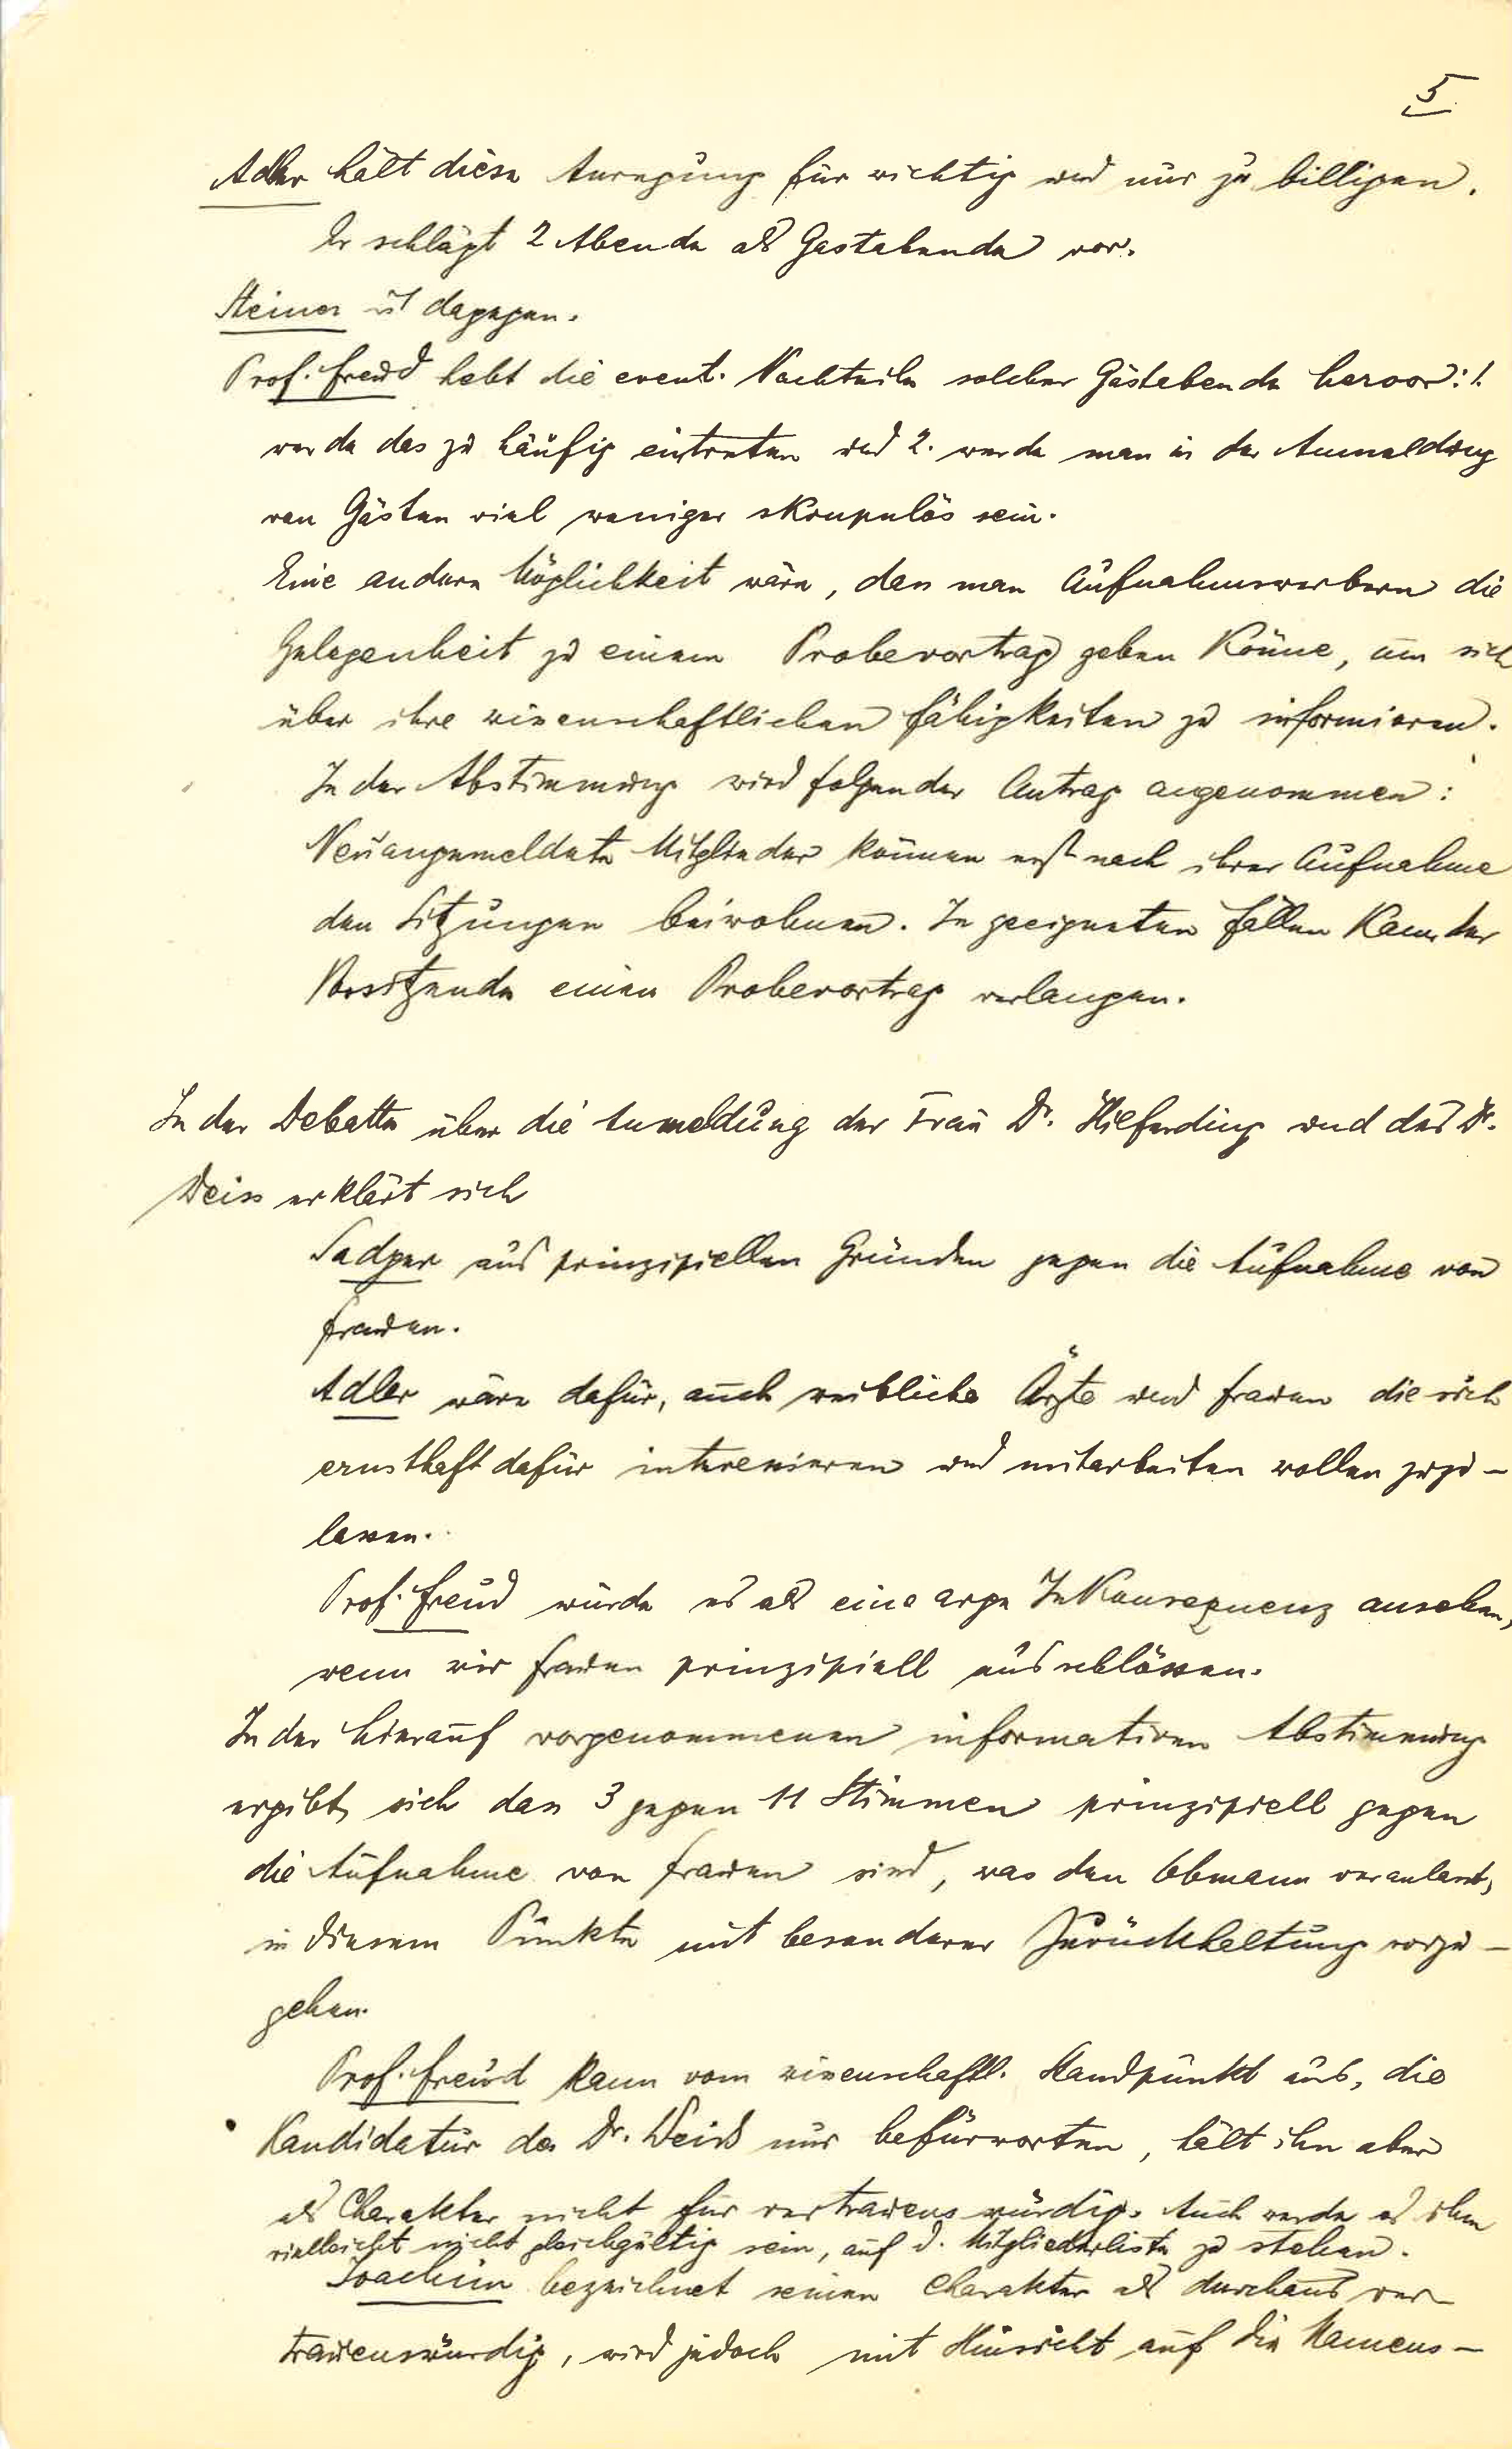 5
Adler hält diese Anregung für wichtig und nur zu billigen.
Er schlägt 2 Abende als Gastabende vor.
Steiner ist dagegen.
Prof. Freud hebt die event. Nachteile solcher Gästebende hervor: 1.
werde das zu häufig eintreten und 2. werde man in der Anmeldung
von Gästen viel weniger skrupulös sein.
Eine andere Möglichkeit wäre, dass man Aufnahmswerbern die
Gelegenheit zu einem Probevortrag geben könne, um sich
über ihre wissenschaftlichen Fähigkeiten zu informieren.
In der Abstimmung wird folgender Antrag angenommen:
Neuangemeldete Mitglieder können erst nach ihrer Aufnahme
den Sitzungen beiwohnen. In geeigneten Fällen kann der
Vorsitzende einen Probevortrag verlangen.
In der Debatte über die Anmeldung der Frau Dr. Hilferding und des Dr.
Weiss erklärt sich
Sadger aus prinzipiellen Gründen gegen die Aufnahme von
Frauen.
Adler wäre dafür, auch weibliche Ärzte und Frauen die sich
ernsthaft dafür interessieren und mitarbeiten wollen zuzu-
lassen.
Prof. Freud würde es als eine arge Inkonsequenz ansehen,
wenn wir Frauen prinzipiell ausschlössen.
In der hierauf vorgenommenen informativen Abstimmung
ergibt sich dass 3 gegen 11 Stimmen prinzipiell gegen
die Aufnahme von Frauen sind, was den Obmann veranlasst,
in diesem Punkte mit besonderer Zurückhaltung vorzu-
gehen.
Prof. Freud kann vom wissenschaftl. Standpunkt aus, die
Kandidatur des Dr. Weiss nur befürworten, hält ihn aber
als Charakter nicht für vertrauenswürdig. Auch werde es ihm
vielleicht nicht gleichgültig sein, auf d. Mitgliederliste zu stehen.
Joachim bezeichnet seinen Charakter als durchaus ver-
trauenswürdig, wird jedoch mit Hinsicht auf die Namens-